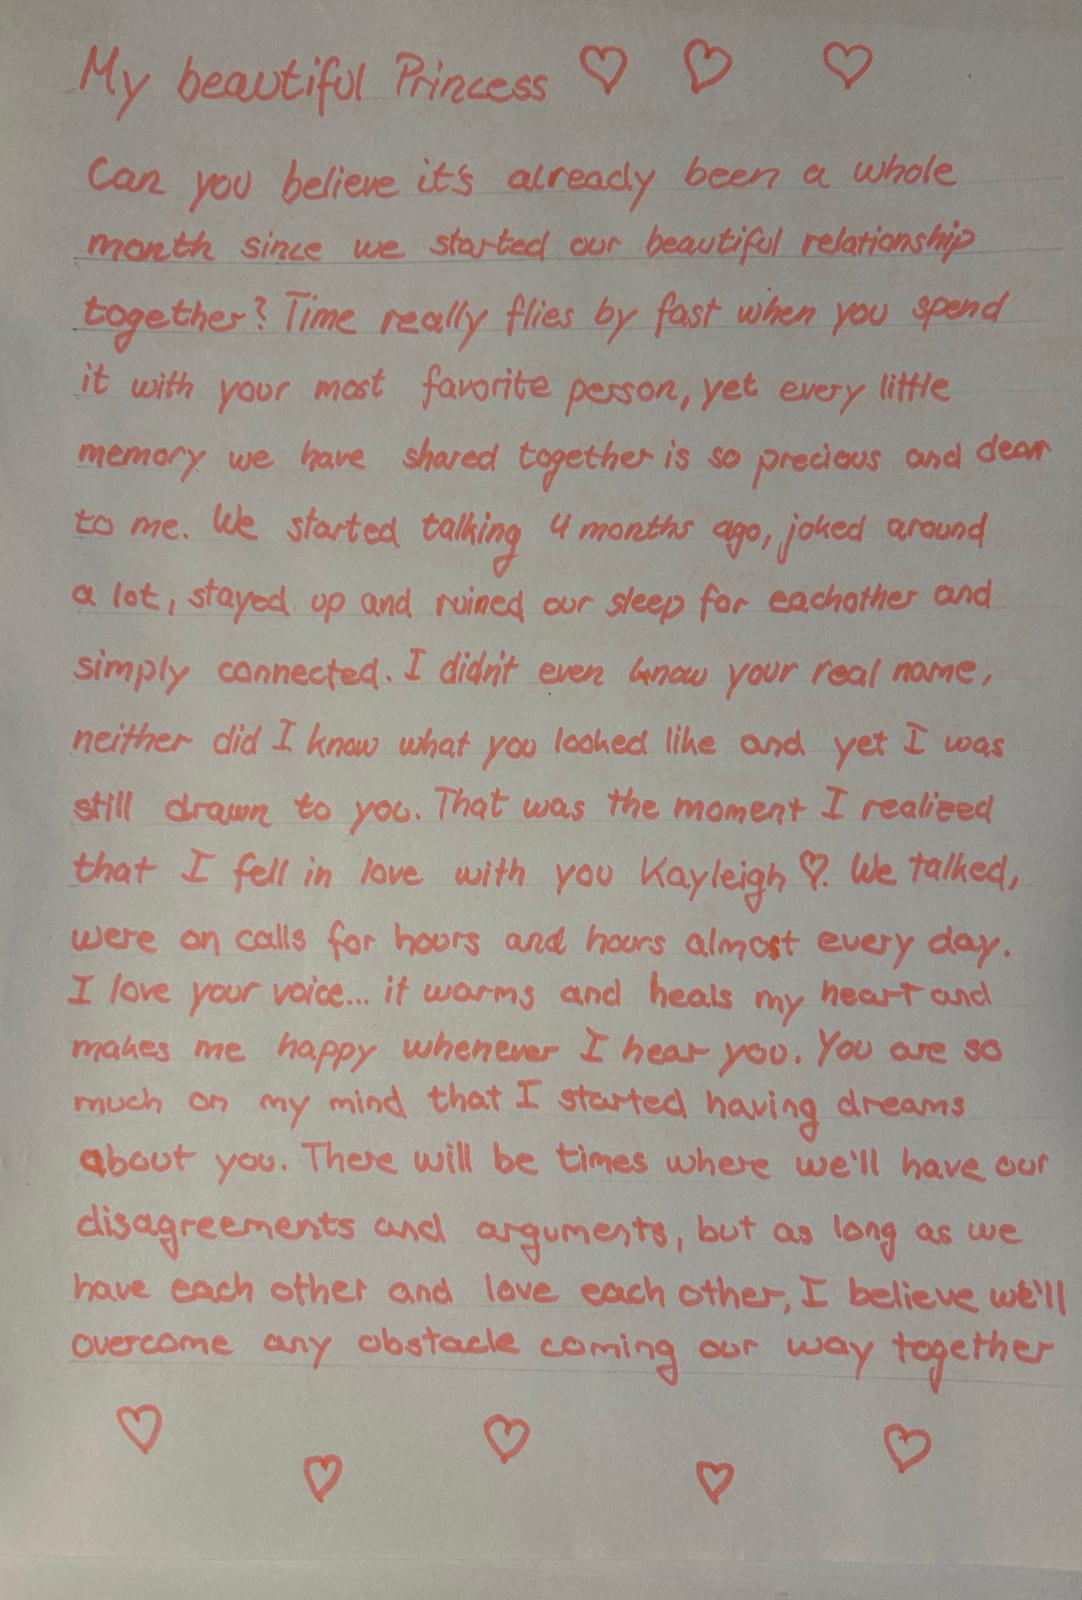 My beautiful Princess ♡ ♡ ♡
Can you believe it's already been a whole
month since we started our beautiful relationship
together? Time really flies by fast when you spend
it with your most favorite person, yet every little
memory we have shared together is so precious and dear
to me. We started talking 4 months ago, joked around
a lot, stayed up and ruined our sleep for eachother and
simply connected. I didn't even know your real name,
neither did I know what you looked like and yet I was
still drawn to you. That was the moment I realized
that I fell in love with you Kayleigh ♡. We talked,
were on calls for hours and hours almost every day.
I love your voice... it warms and heals my heart and
makes me happy whenever I hear you. You are so
much on my mind that I started having dreams
about you. There will be times where we'll have our
disagreements and arguments, but as long as we
have each other and love each other, I believe we'll
overcome any obstacle coming our way together
♡ ♡ ♡ ♡ ♡